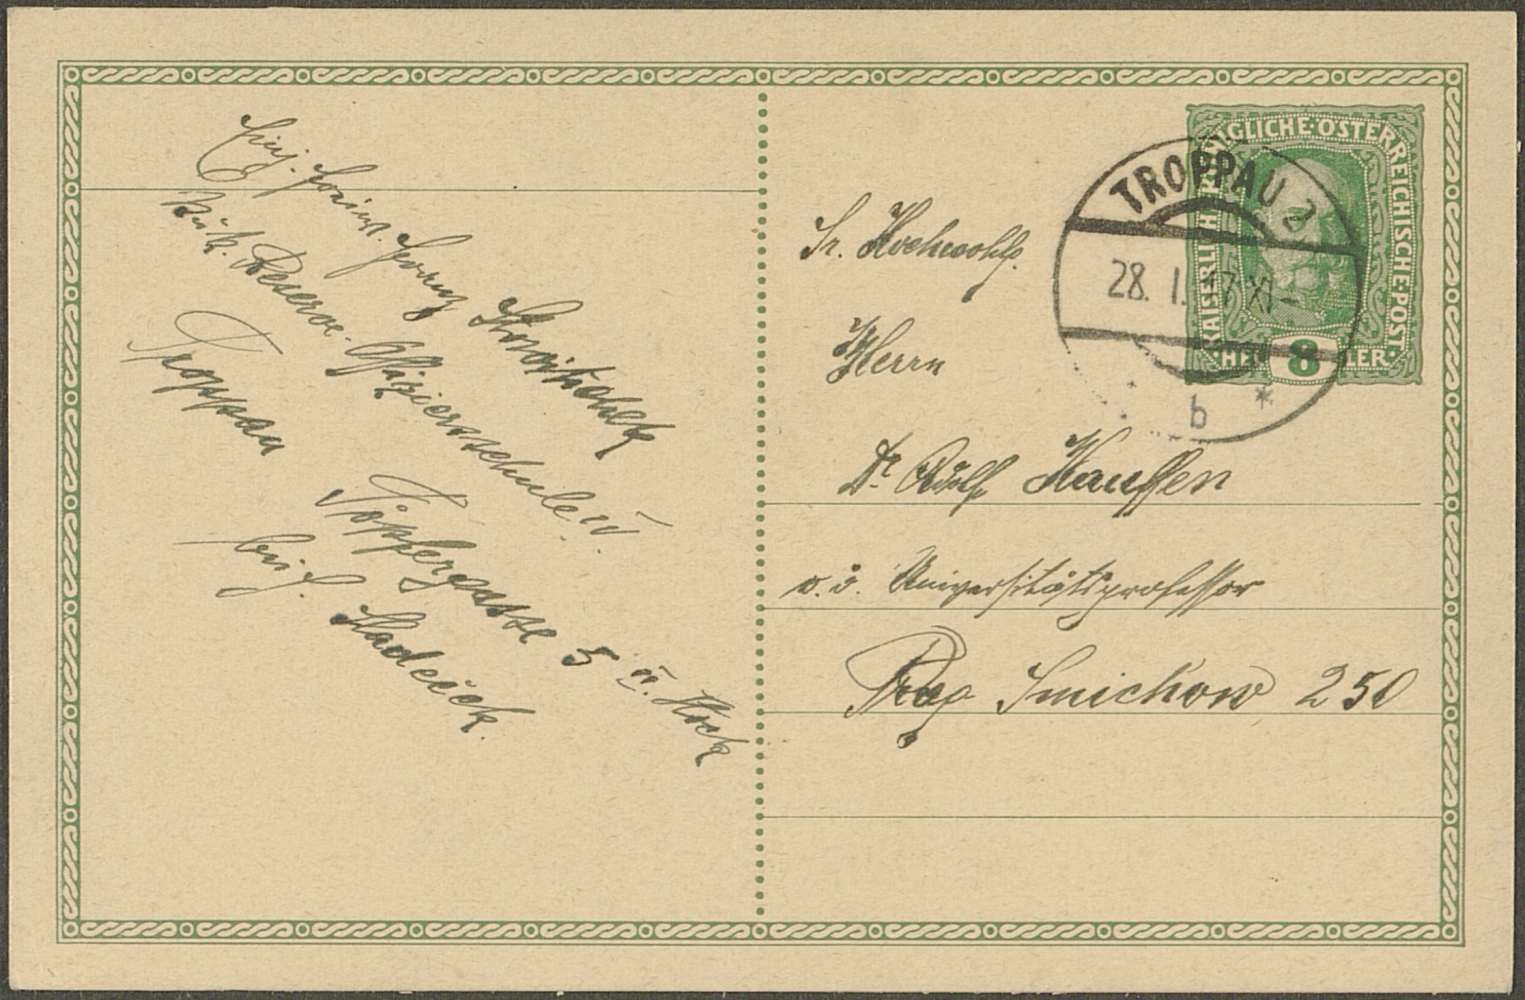 Einj. Freiw. Franz
K. u. k. Reserve-Offiziersschule IV
Troppau
Töpfergasse 5 II. Stock
bei H. Hadeick.
KAISERLICHE KÖNIGLICHE ÖSTERREICHISCHE POST
8 HELLER
TROPPAU 2
28. I. 17 XI
b
Sr. Hochwohlg.
Herrn
Dr. Adolf Hauffen
o. ö. Universitätsprofessor
Prag Smichow 250